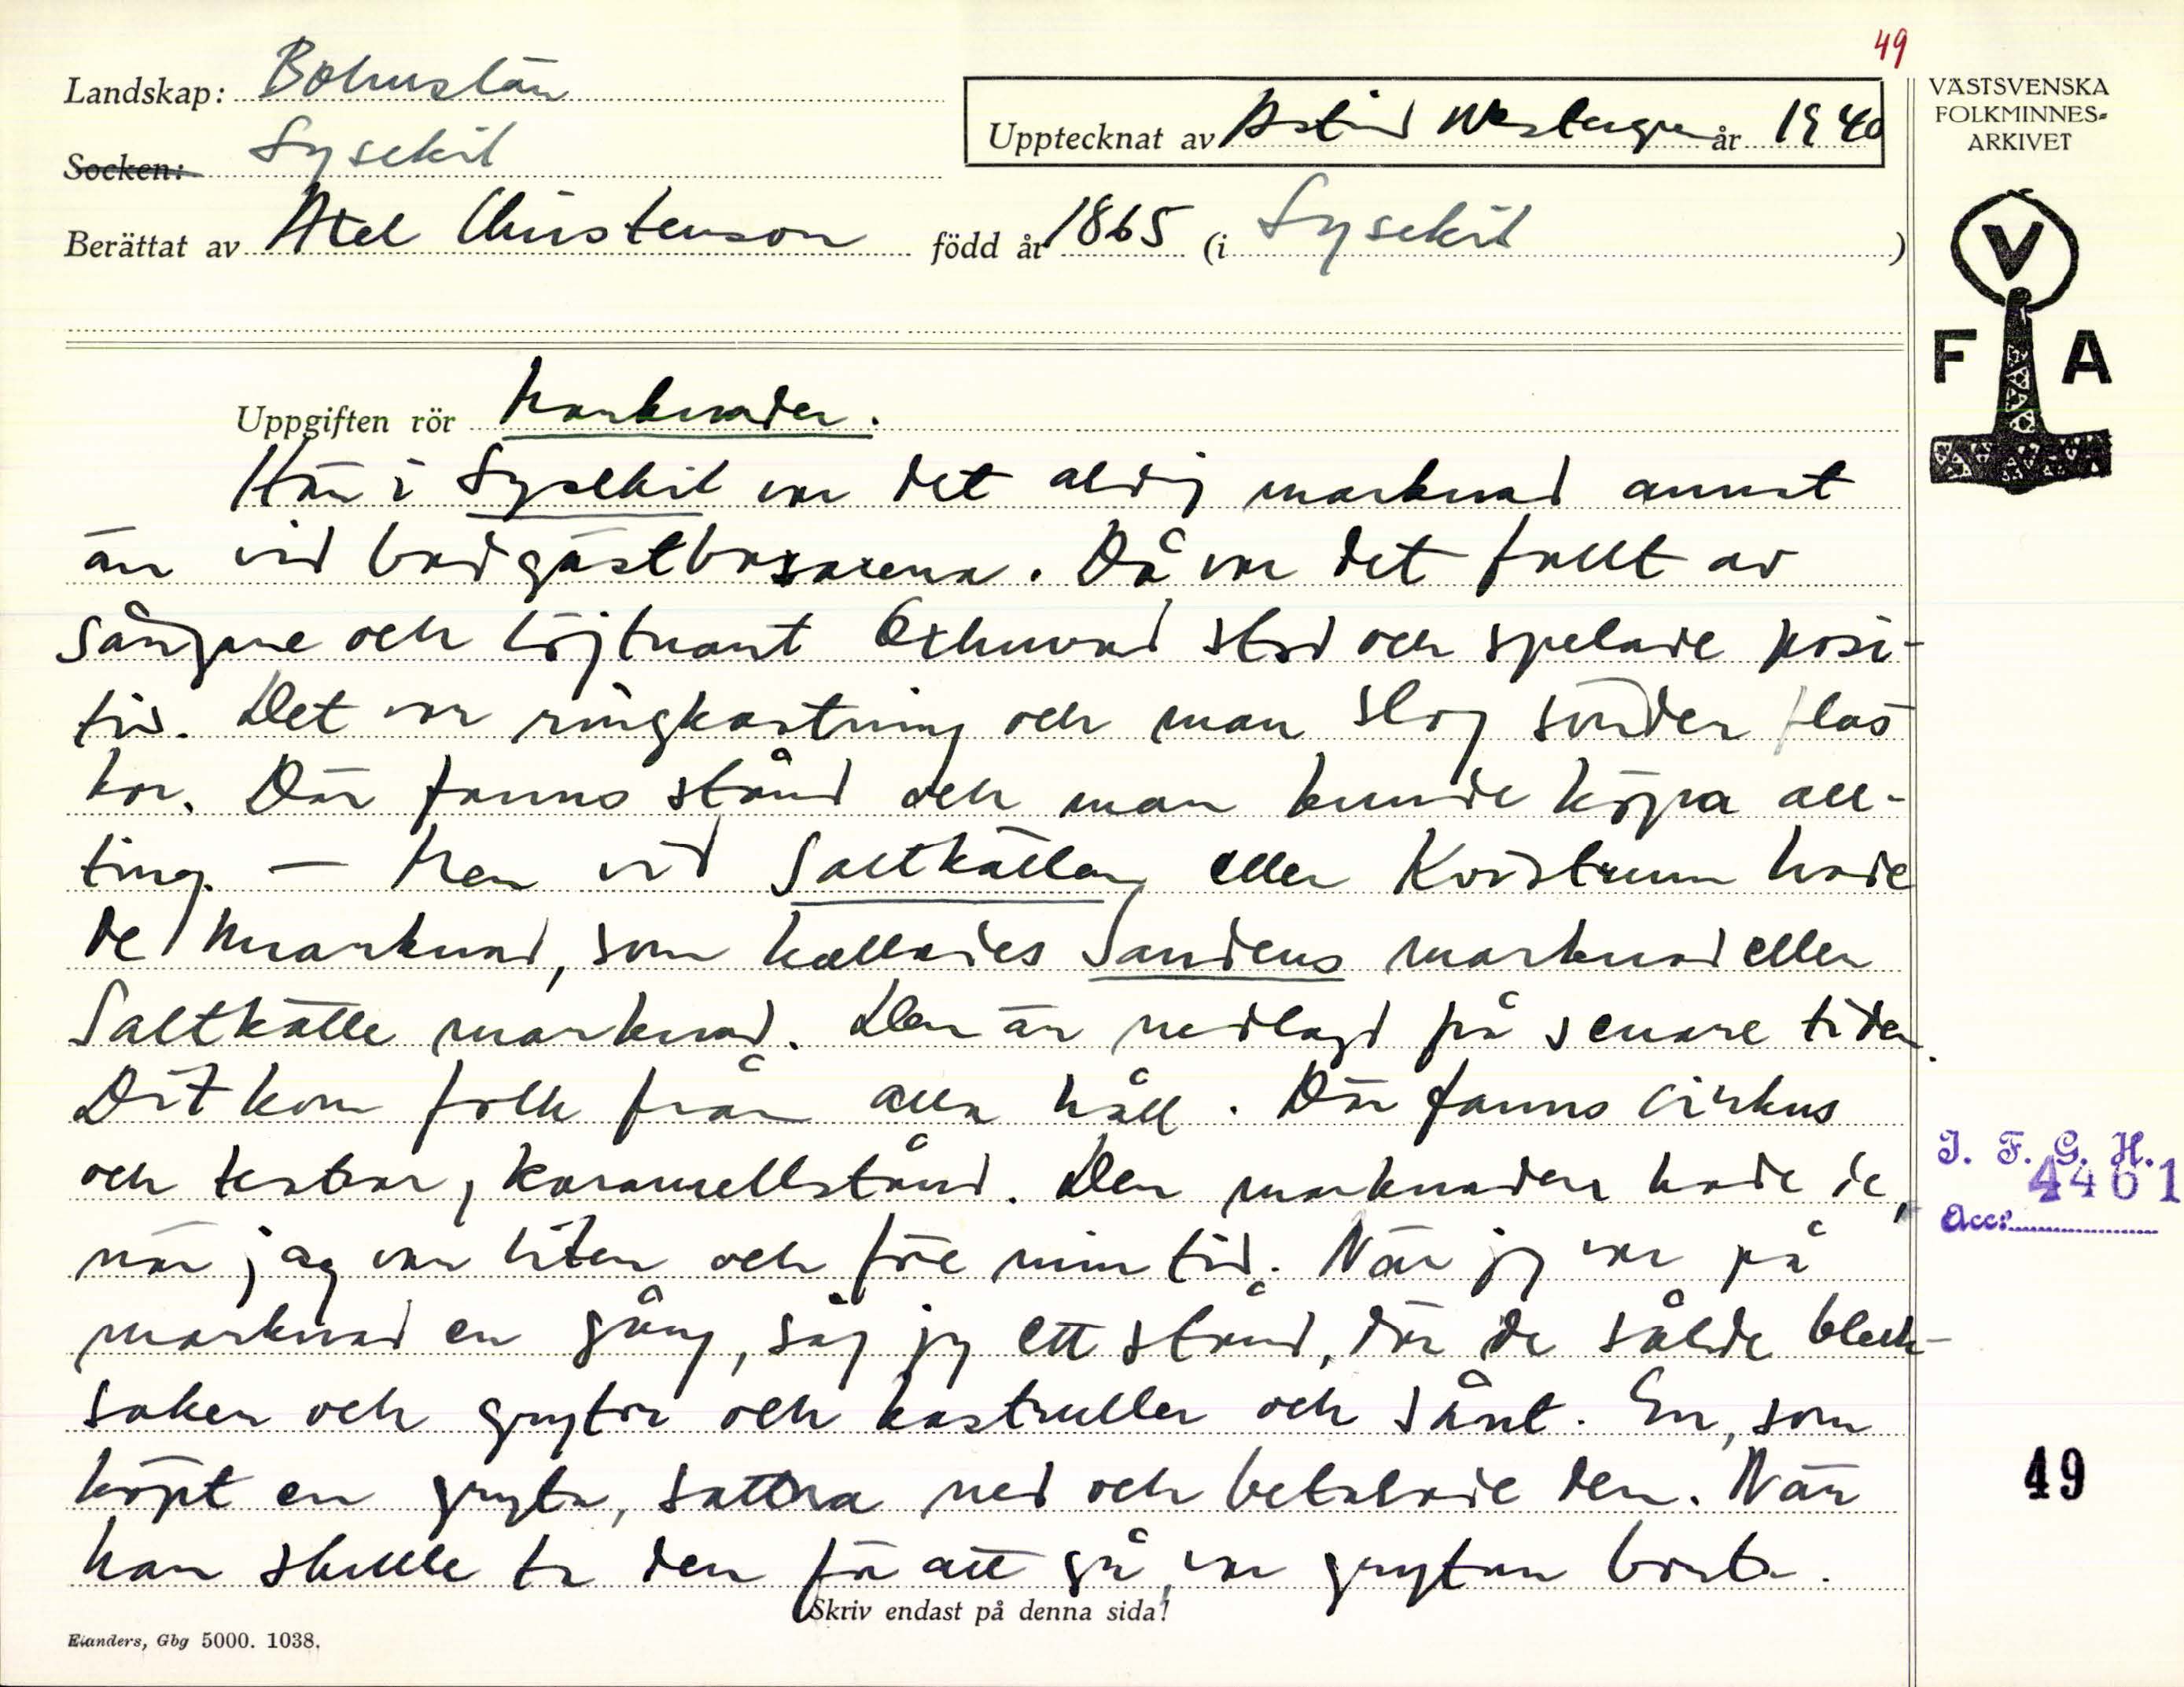 49
Landskap: Bohuslän
Socken: Lysekil
Upptecknat av Astrid Westergren år 1940
Berättat av Axel Christenson född år 1865 (i Lysekil)
VÄSTSVENSKA
FOLKMINNES-
ARKIVET
V
F A
Uppgiften rör Marknader.
Här i Lysekil var det aldrig marknad annat
än vid badgästbasarerna. Då var det fullt av
sångare och löjtnant Oxhuvud stod och spelade posi-
tiv. Det var ringkastning och man slog sönder flas
kor. Där fanns stånd och man kunde köpa all-
ting. – Men vid Saltkällan eller Kvistrum hade
de marknad, som kallades Sandens marknad eller
Saltkälle marknad. Den är nedlagd på senare tider.
Dit kom folk från alla håll. Där fanns cirkus
och teatrar, karamellstånd. Den marknaden hade de,
när jag var liten och före min tid. När jag var på
marknad en gång, såg jag ett stånd, där de sålde bleck-
saker och grytor och kastruller och sånt. En, som
köpt en gryta, satt na ned och betalade den. När
han skulle ta den för att gå, var grytan borta.
Skriv endast på denna sida!
Elanders, Gbg 5000. 1038.
I. F. G. H.
4461
Acc:
49